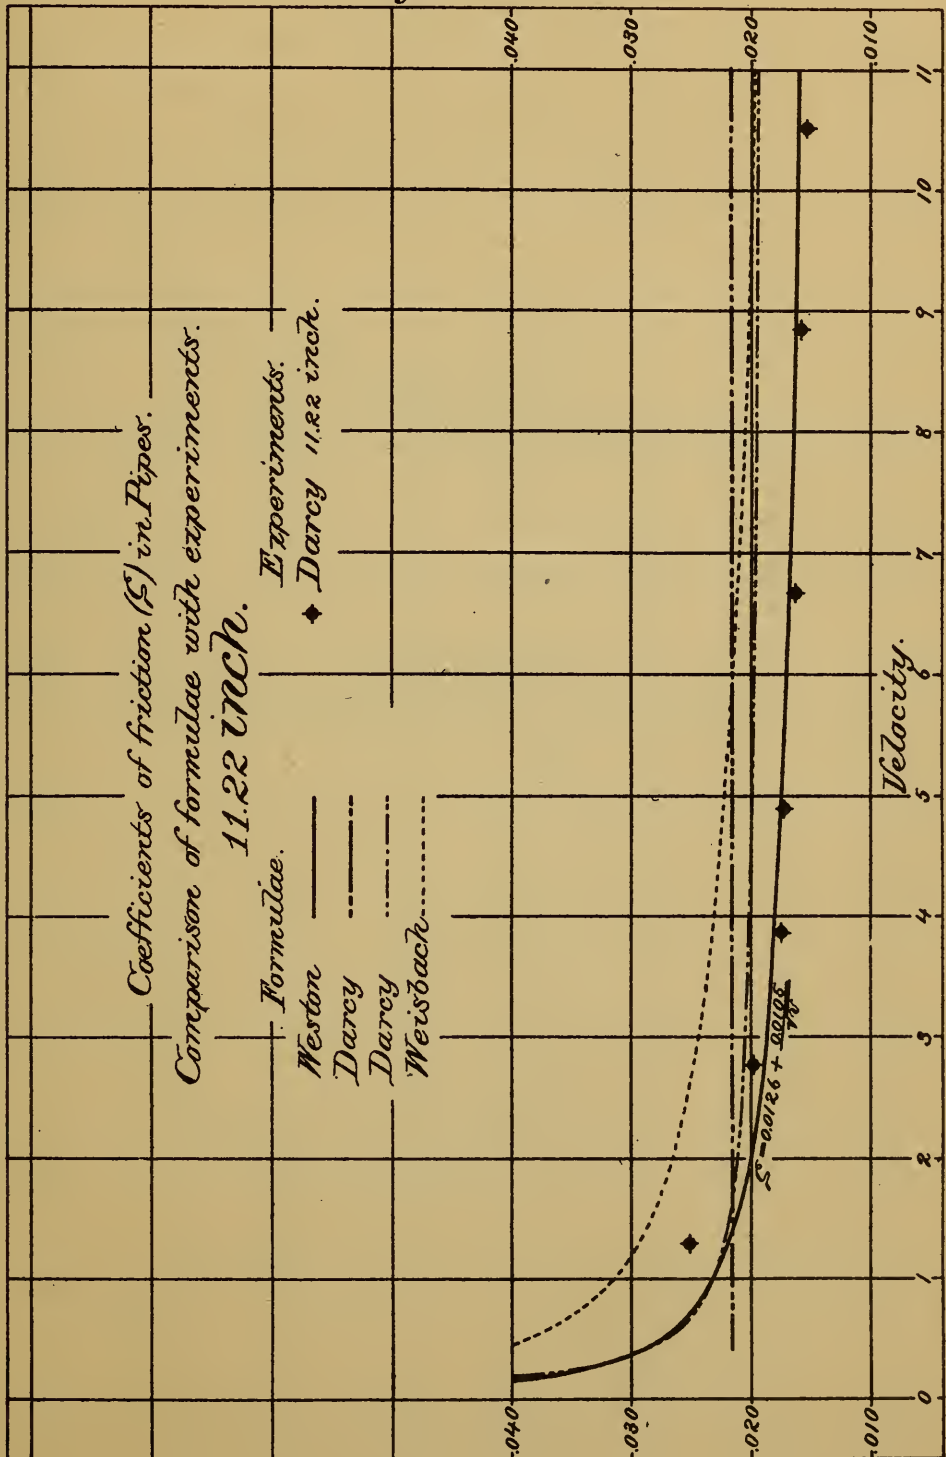 Coefficients of friction (ζ) in Pipes.
Comparison of formulae with experiments.
11.22 inch.
Formulae.
Weston
Darcy
Darcy
Weisbach
Experiments.
Darcy 11.22 inch.
.040
.030
.020
.010
.040
.030
.020
.010
ζ = 0.0126 +
0 1 2 3 4 5 6 7 8 9 10 11
Velocity.